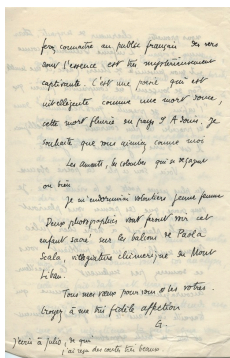 fera connaître au public français des vers
dont l'essence est très mystérieusement
captivante. C'est une poésie qui est
comme une mort douce,
cette mort fleurie du pays d'Adonis. Je
souhaite que vous aimiez comme moi
Les amants, les colombes qui se
ou bien
Je m'endormirai volontiers jeune femme
Deux photographies vont près sur cet
enfant sacré sur les balcons de Paola
Scala, villégiature chimérique du Mont
Liban.
Tous mes vœux pour vous et les vôtres.
Croyez à ma très fidèle affection
G.
J'écris à Julio, de qui
j'ai reçu des contes très beaux